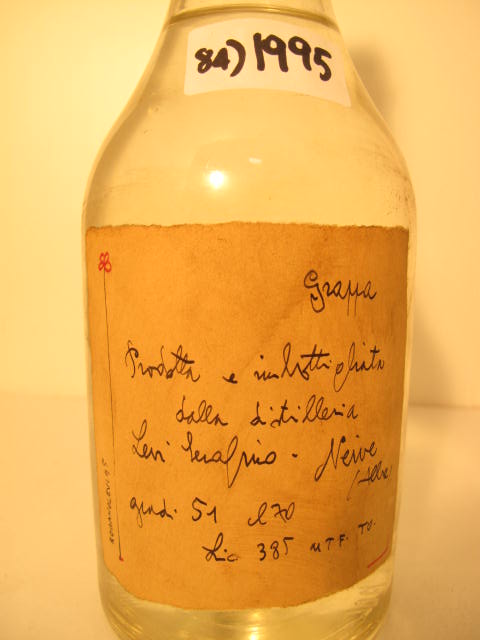 84) 1995
Grappa
Prodotta e imbottigliata
dalla distilleria
Levi Serafino - Neive
(Alba)
gradi 51 cl 70
Lic 385 UTF. TO.
ROMANOLEVI 95